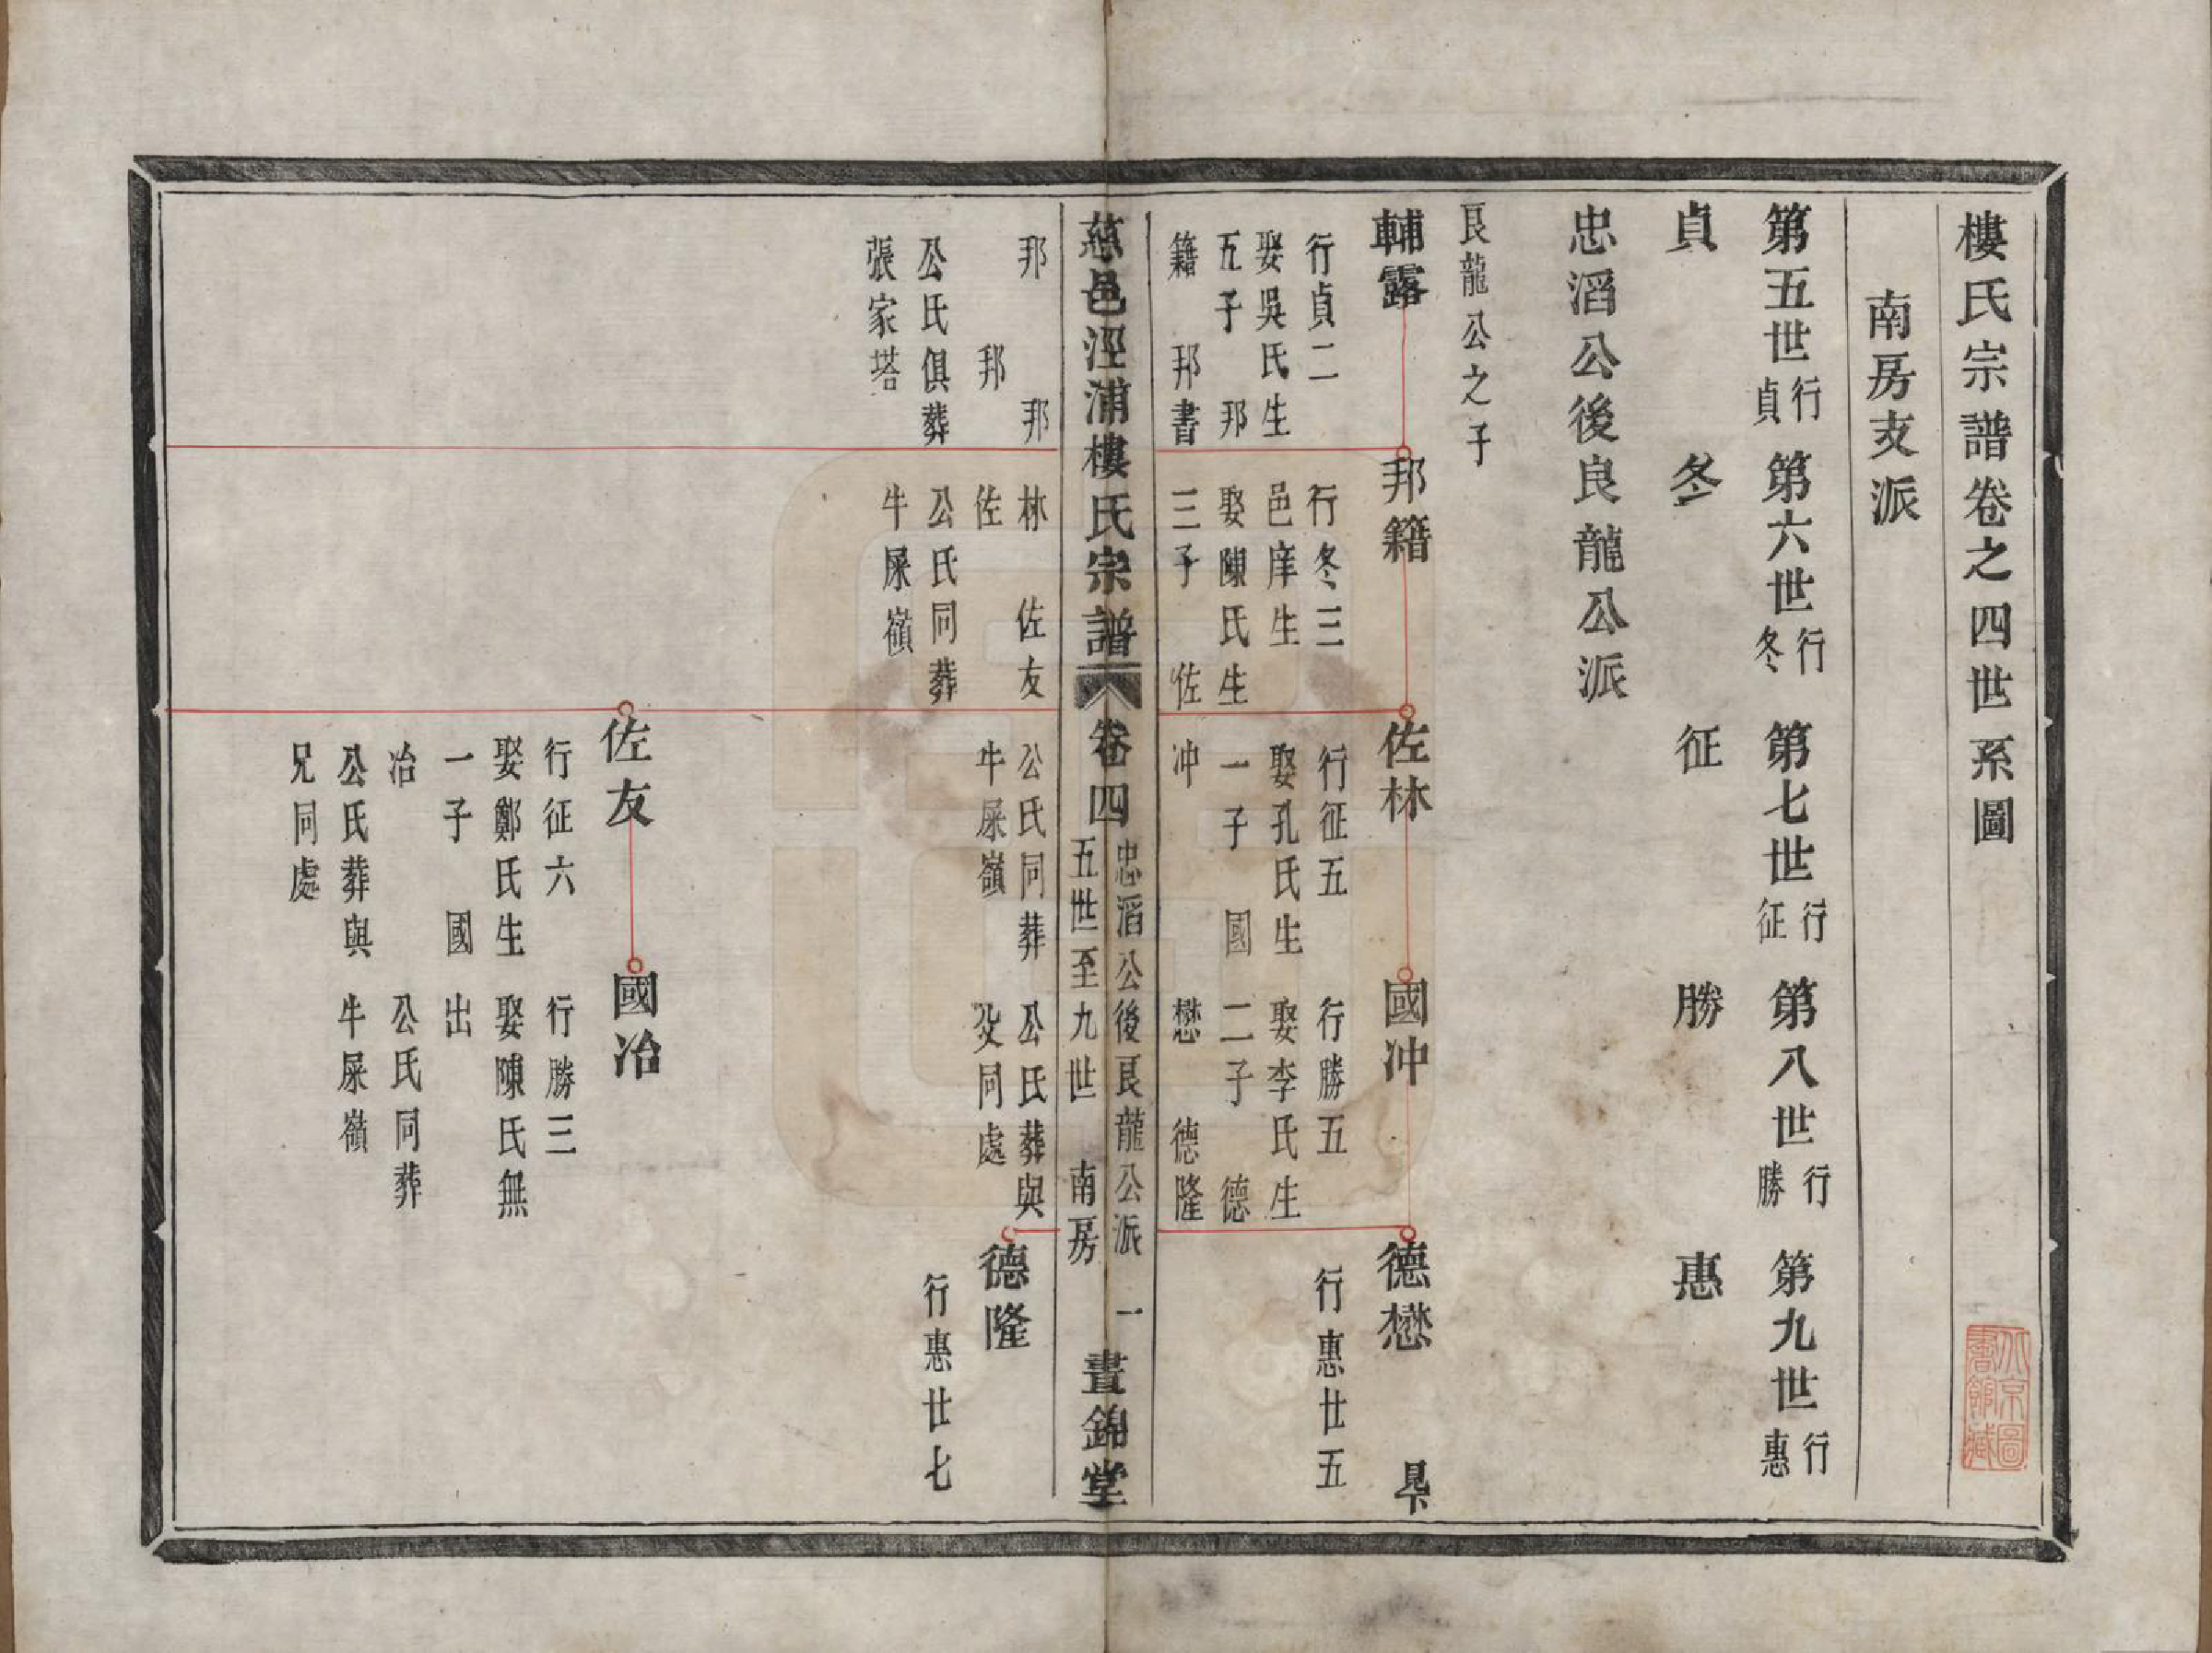 樓氏宗譜卷之四世系圖
南房支派
第五世行貞
第六世行冬
第七世行征
第八世行勝
第九世行惠
貞
冬
征
勝
惠
忠滔公後良龍公派
良龍公之子
輔露
行貞二
娶吳氏生
五子 邦
籍 邦書
邦籍
行冬三
邑庠生
娶陳氏生
三子 佐
佐林
行征五
娶孔氏生
一子 國
冲
國冲
行勝五
娶李氏生
二子 德
懋 德隆
德懋
行惠廿五
慈邑淫浦樓氏宗譜
卷四
忠滔公後良龍公派 一
五世至九世 南房
晝錦堂
邦 邦
邦
公氏俱葬
張家塔
林 佐友
佐
公氏同葬
牛屎嶺
公氏同葬
牛屎嶺
公氏葬與
父同處
德隆
行惠廿七
佐友
行征六
娶鄭氏生
一子 國
冶
公氏葬與
兄同處
國冶
行勝三
娶陳氏無
出
公氏同葬
牛屎嶺